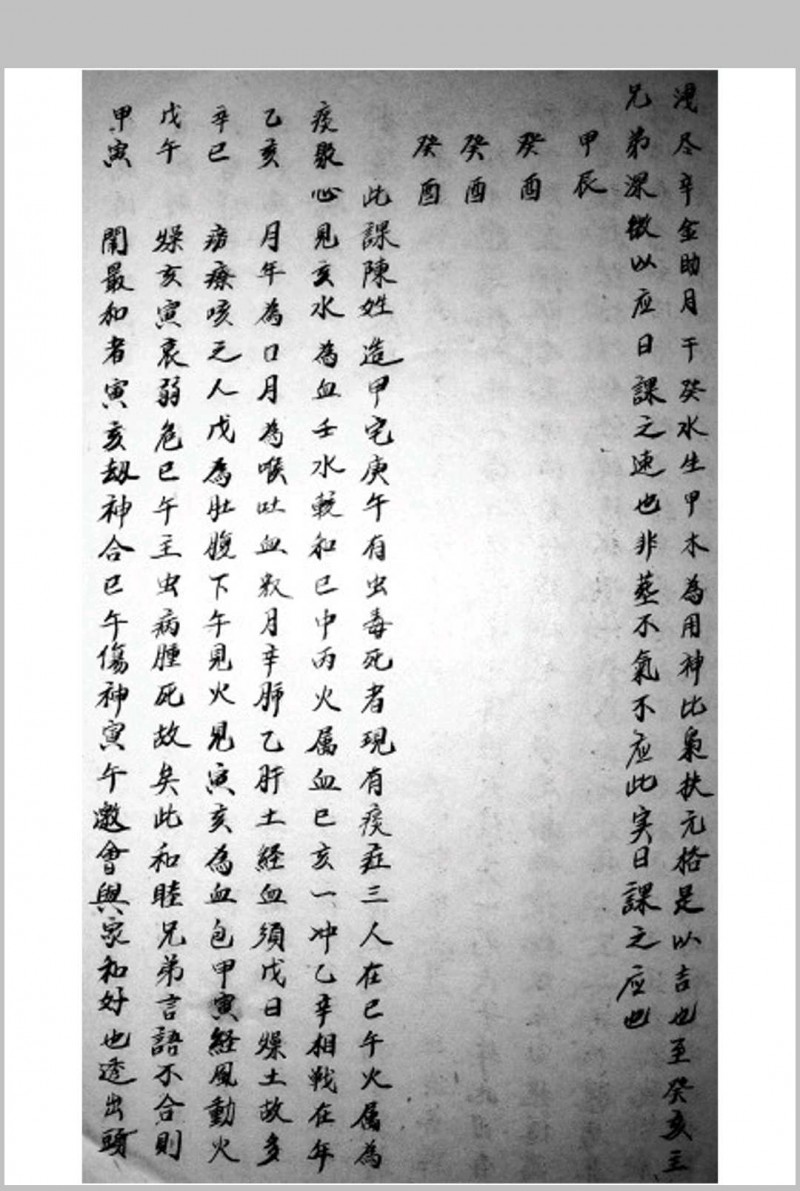 洩尽辛金助月干癸水生甲木為用神比梟扶元格是以吉也至癸亥主
兄弟深微以应日課之速也非葬不氣不应此实日課之应也
甲辰
癸酉
癸酉
癸酉
此課陳姓造甲宅庚午有虫毒死者現有痰症三人在巳午火属為
痰聚心見亥水為血壬水較和巳中丙火属血巳亥一冲乙辛相戦在年
乙亥 月年為口月為喉吐血数月辛肺乙肝土経血須戊日燥土故多
辛巳 痨療咳之人戊為肚腹下午見火見寅亥為血包甲寅経風動火
戊午 燥亥寅衰弱危巳午主虫病腫死故矣此和睦兄弟言語不合則
甲寅 鬧最和者寅亥劫神合巳午傷神寅午邀會與家和好也透出頭